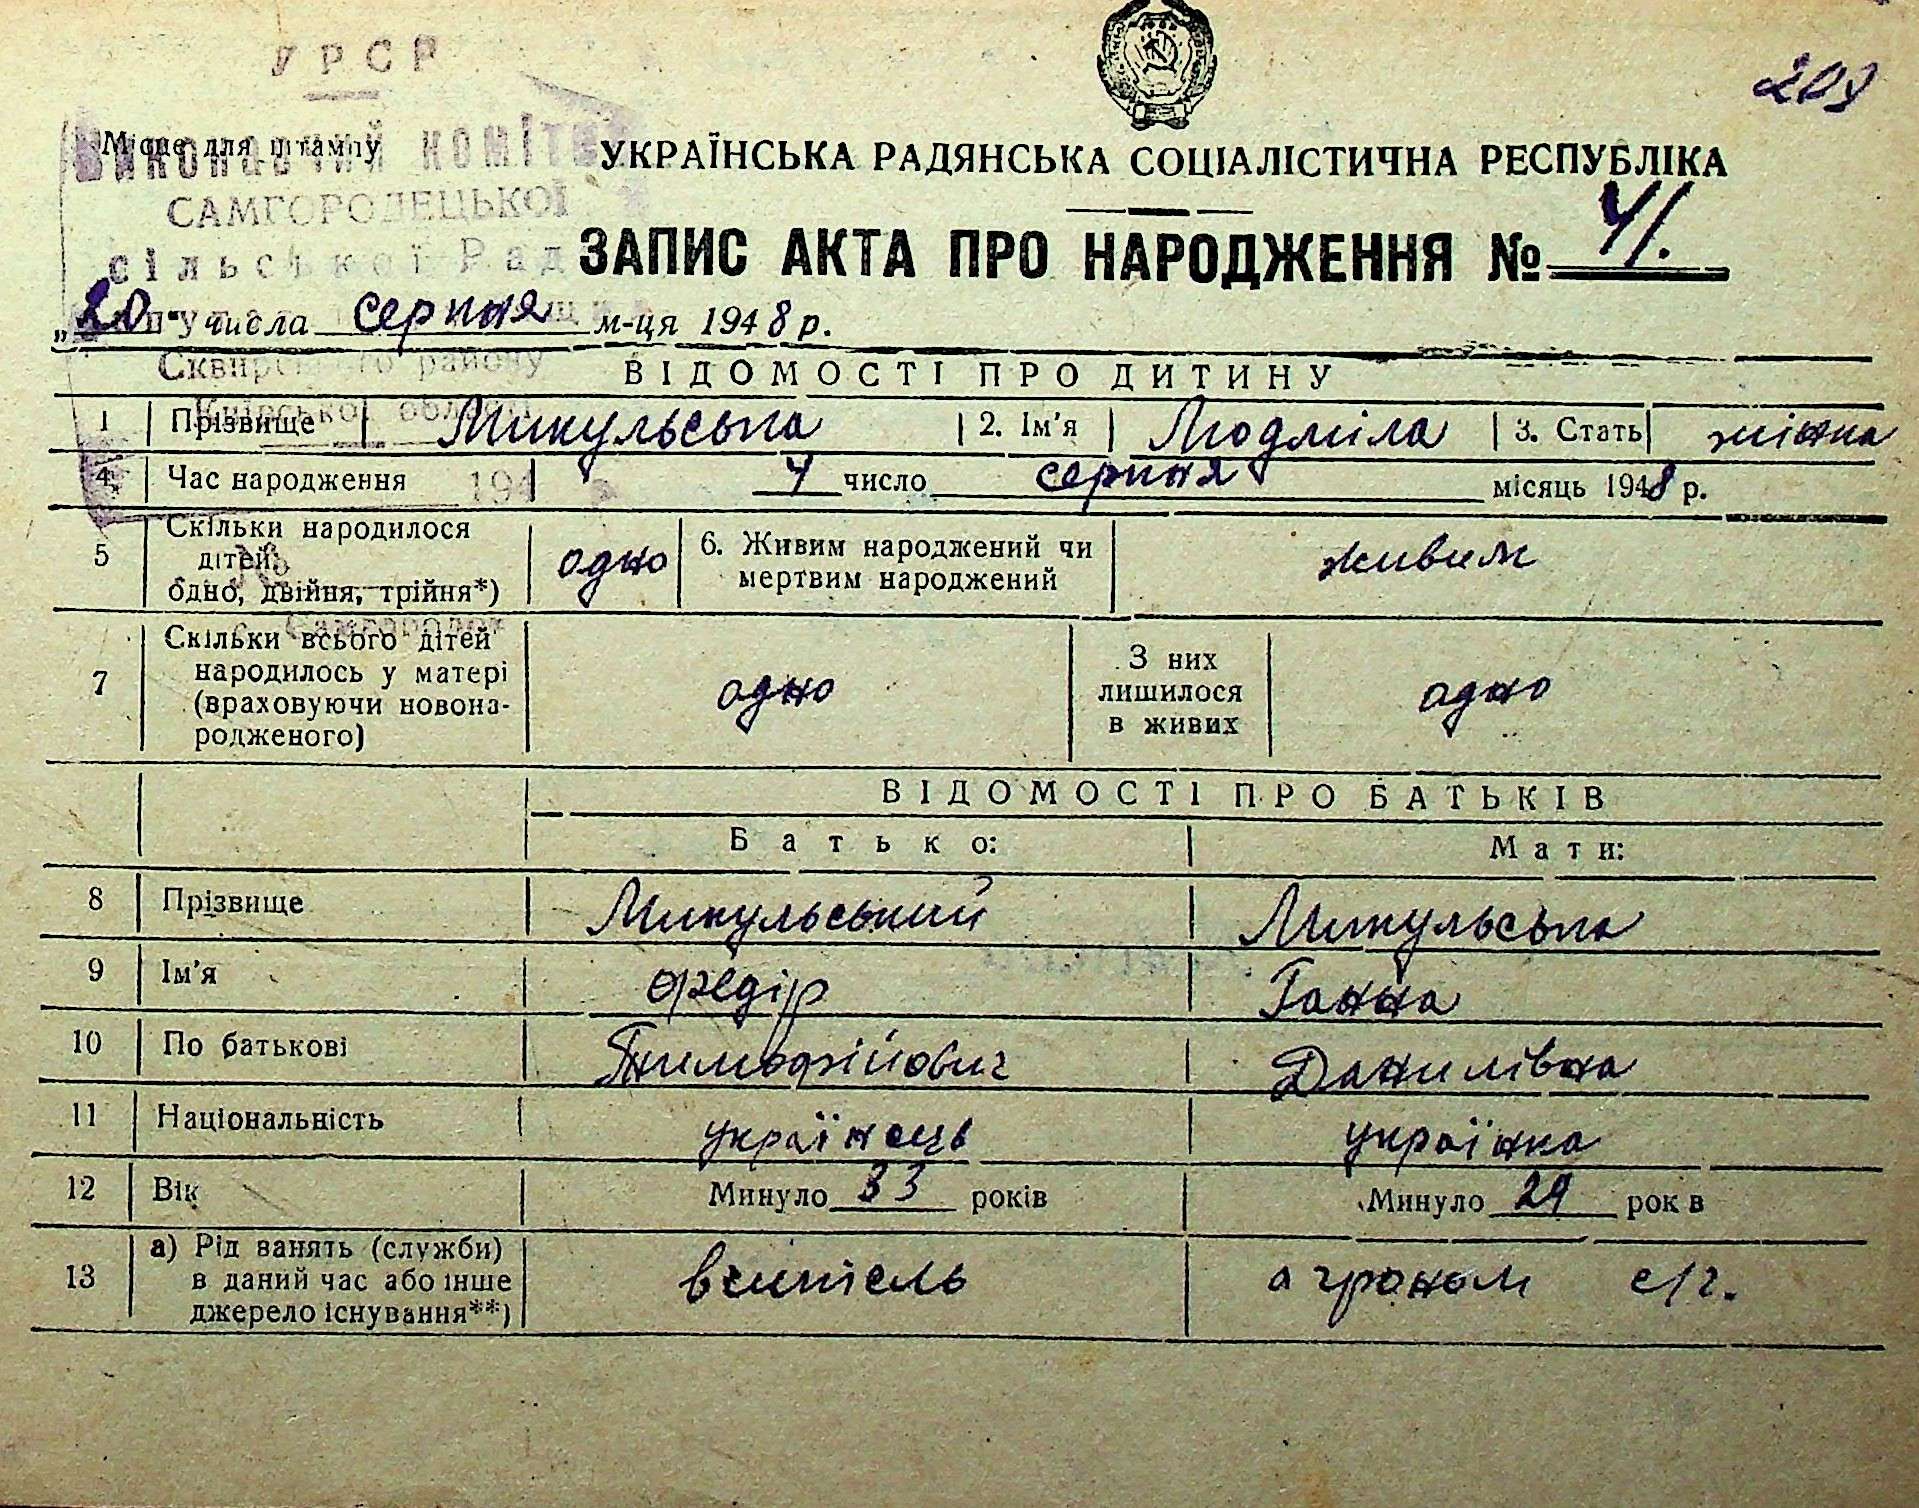 УРСР
209
Місце для штампу
Виконавчий комітет
УКРАЇНСЬКА РАДЯНСЬКА СОЦІАЛІСТИЧНА РЕСПУБЛІКА
САМГОРОДЕЦЬКОЇ
сільської Рад
ЗАПИС АКТА ПРО НАРОДЖЕННЯ № 41.
„20" числа серпня м-ця 1948 р.
Сквирського району
ВІДОМОСТІ ПРО ДИТИНУ
Київської області
1 Прізвище Микульська 2. Ім'я Людміла 3. Стать жінка
4 Час народження 4 число серпня місяць 1948 р.
194
5 Скільки народилося дітей: одно, двійня, трійня*) одно 6. Живим народжений чи мертвим народжений живим
с. Самгородок
7 Скільки всього дітей народилось у матері (враховуючи новонародженого) одно З них лишилося в живих одно
ВІДОМОСТІ ПРО БАТЬКІВ
Батько: Мати:
8 Прізвище Микульський Микульська
9 Ім'я Федір Ганна
10 По батькові Тимофійович Данилівна
11 Національність українець українка
12 Вік Минуло 33 років Минуло 29 рок в
13 а) Рід занять (служби) в даний час або інше джерело існування**) вчитель агроном с/г.